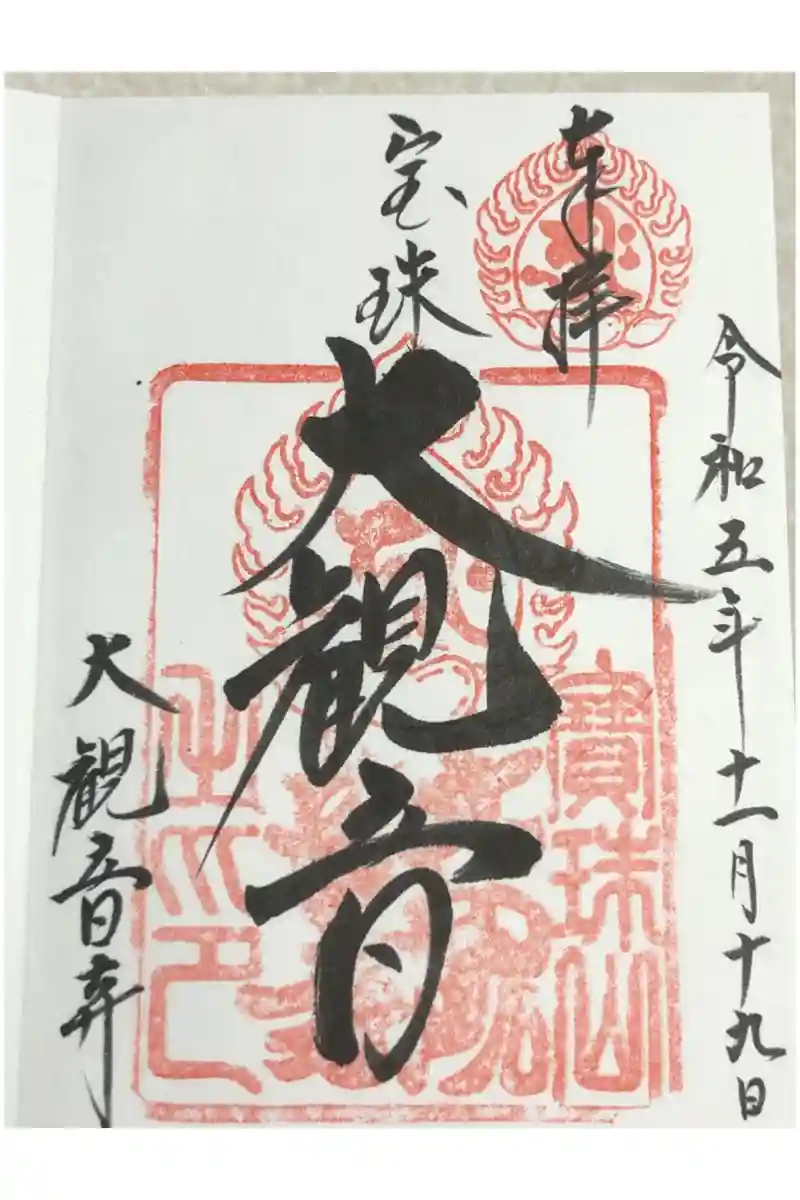 奉拝
令和五年十一月十九日
宝珠
大観音
大観音寺
寳珠山
之印